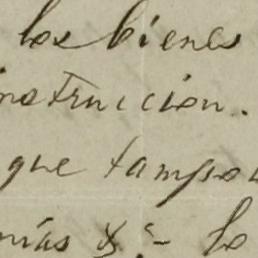 los bienes
instruccion.
que tampoco
más &ª lo